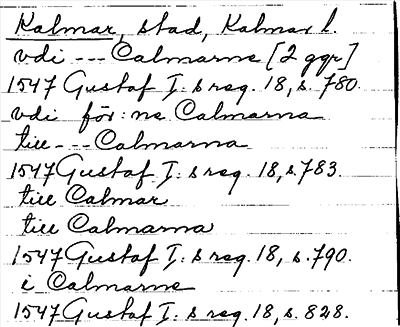 Kalmar, stad, Kalmar l.
vdi --- Calmarne [2 ggr]
1547 Gustaf I:s reg. 18, s. 780.
vdi för:ne Calmarna
till --- Calmarna
1547 Gustaf I:s reg. 18, s. 783.
till Calmar
till Calmarna
1547 Gustaf I:s reg. 18, s. 790.
i Calmarne
1547 Gustaf I:s reg. 18, s. 828.